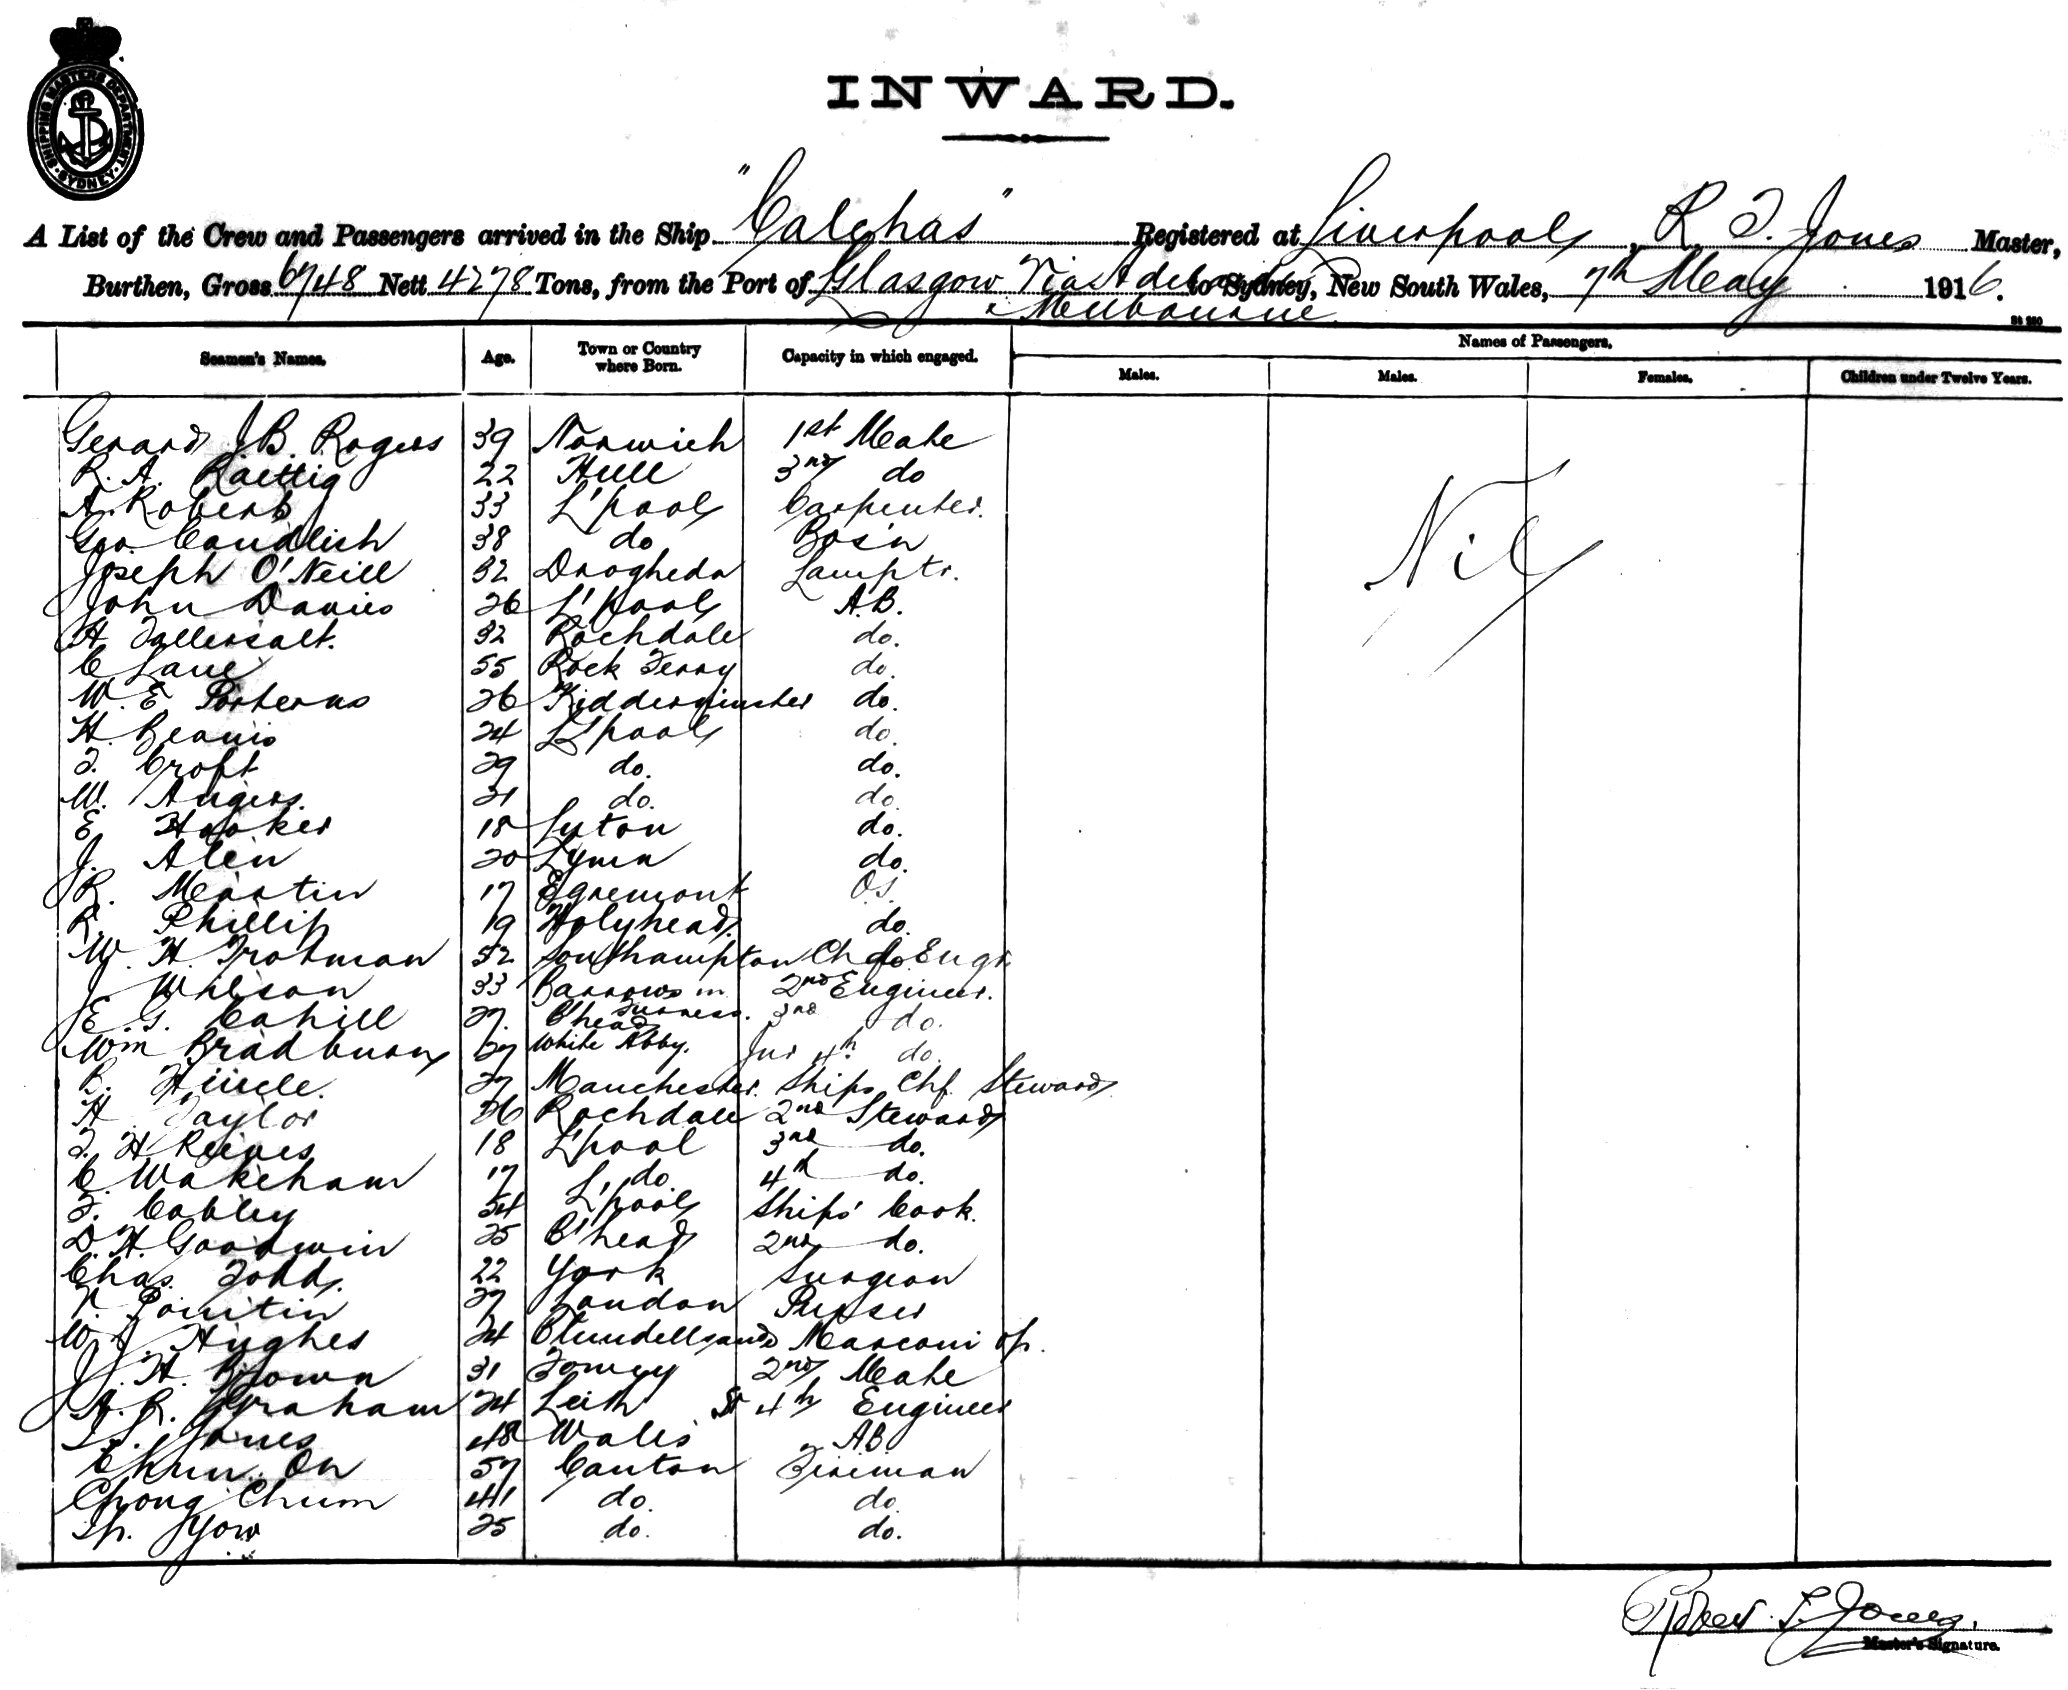 SHIPPING MASTERS DEPARTMENT
SYDNEY
INWARD.
A List of the Crew and Passengers arrived in the Ship "Calchas" Registered at Liverpool, R. T. Jones Master,
Burthen, Gross 6748 Nett 4278 Tons, from the Port of Glasgow Via Adelaide to Sydney, New South Wales, 7th May 1916.
& Melbourne
Seamen's Names. Age. Town or Country where Born. Capacity in which engaged. Names of Passengers.
Males. Males. Females. Children under Twelve Years.
Gerard J. B. Rogers 39 Norwich 1st Mate
R. A. Raettig 22 Hull 3rd do
A. Roberts 33 L'pool Carpenter.
Geo. Candlish 38 do Bos'n
Nil
Joseph O'Neill 32 Drogheda Lamptr.
John Davies 26 L'pool A.B.
H. Tattersalt. 32 Rochdale do.
C Lane 55 Rock Ferry do.
W. E. Porteras 26 Kidderminster do.
H. Beavis 24 L'pool do.
T. Croft 29 do. do.
W. Angers. 21 do. do.
E. Hooker 18 Luton do.
J. Alen 20 Lymm do.
R. Martin 17 Egremont OS.
R. Phillip 19 Holyhead. do.
W. H. Trotman 52 Southampton Chf Engr.
J. Wilson 33 Barrow in Furness. 2nd Engineer.
E. G. Cahill 27. B'head 3rd do.
Wm Bradburn 27 White Abby. Jnr 4th do.
R. 27 Manchester. Ships Chf Steward
H. Taylor 26 Rochdale 2nd Steward
T. H Reeves 18 L'pool 3rd do.
C. Wakeham 17 do. 4th do.
T. Cobley 54 L'pool Ships' Cook.
D. H. Goodwin 25 B'head 2nd do.
Chas. Todd. 22 York Surgeon
Pointin 27 London Purser
W. J. Hughes 24 Blundellsands Marconi Op.
J. H. Brown 31 2nd Mate
A. R. Graham 24 Leith Sr 4th Engineer
Jones 48 Wales AB
Chun On 57 Canton Fireman
Chong Chum 41 do. do.
Yow 25 do. do.
Robert T. Jones.
Master's Signature.